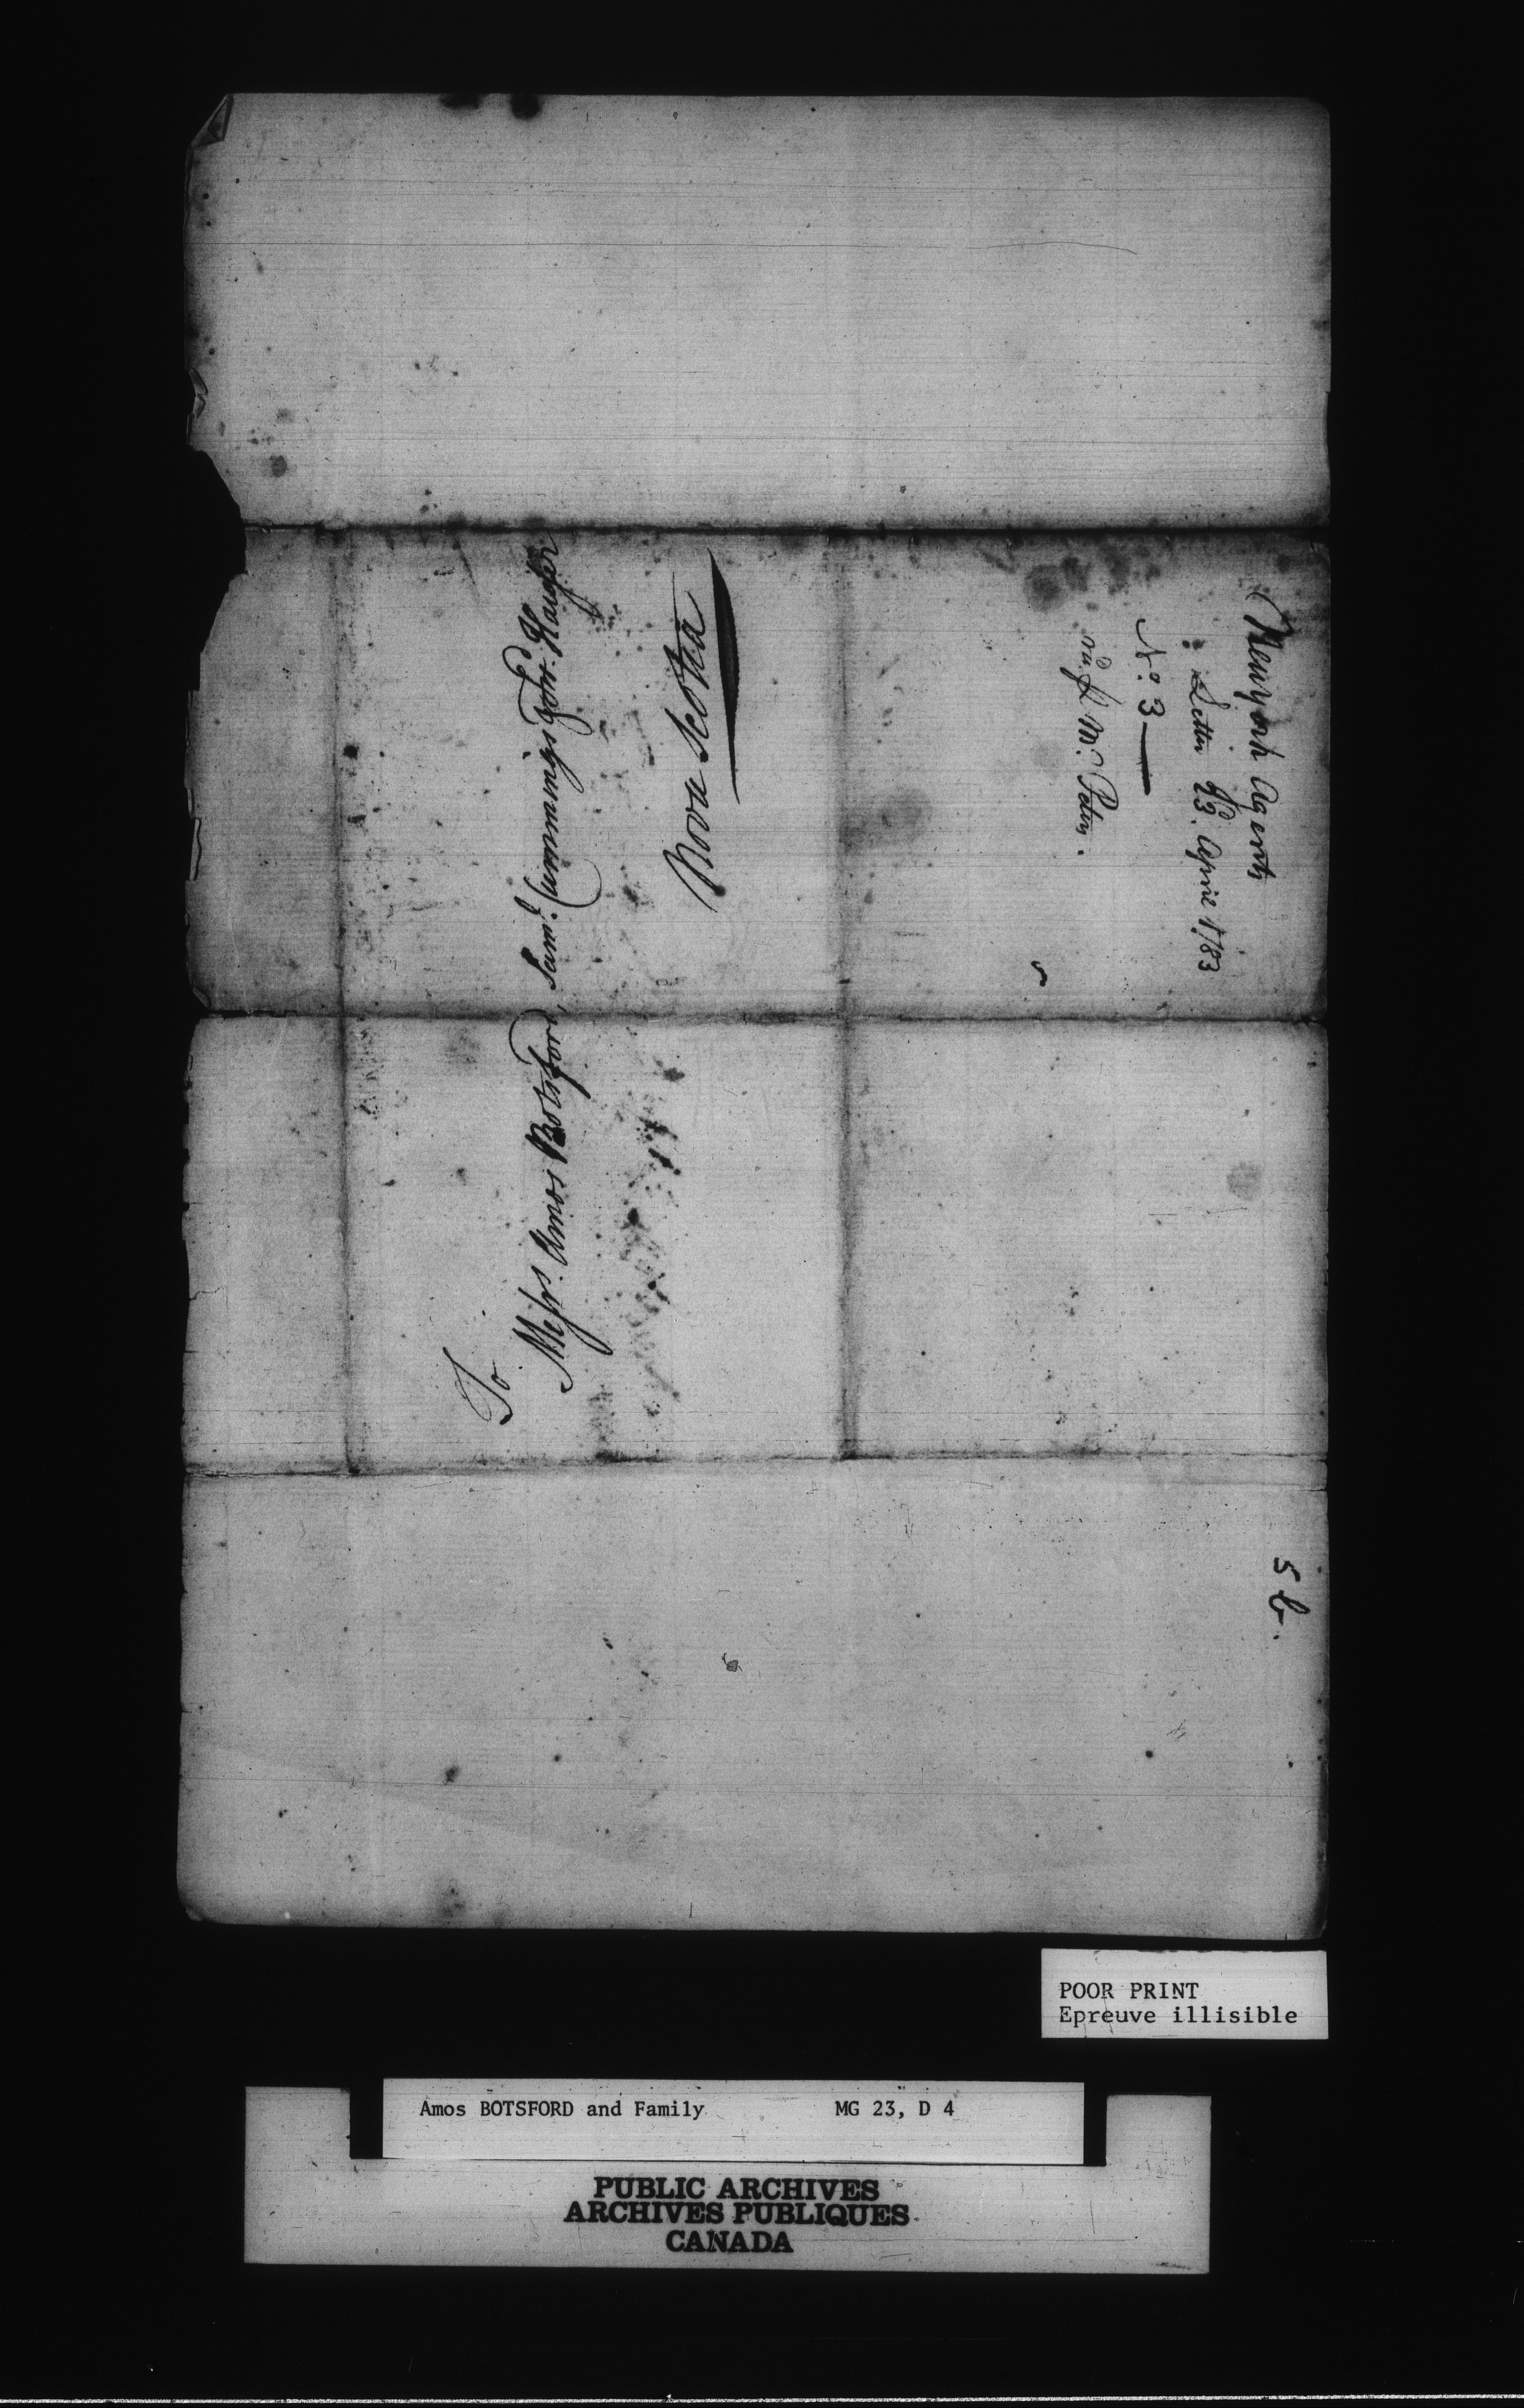 To
Messrs. Amos Botsford, Saml. Cummings & Fredk. Hauser
Nova Scotia
Newyork Agents
Letter 23. April 1783
No. 3
Mr. Peters.
5 b.
POOR PRINT
Epreuve illisible
Amos BOTSFORD and Family MG 23, D 4
PUBLIC ARCHIVES
ARCHIVES PUBLIQUES
CANADA